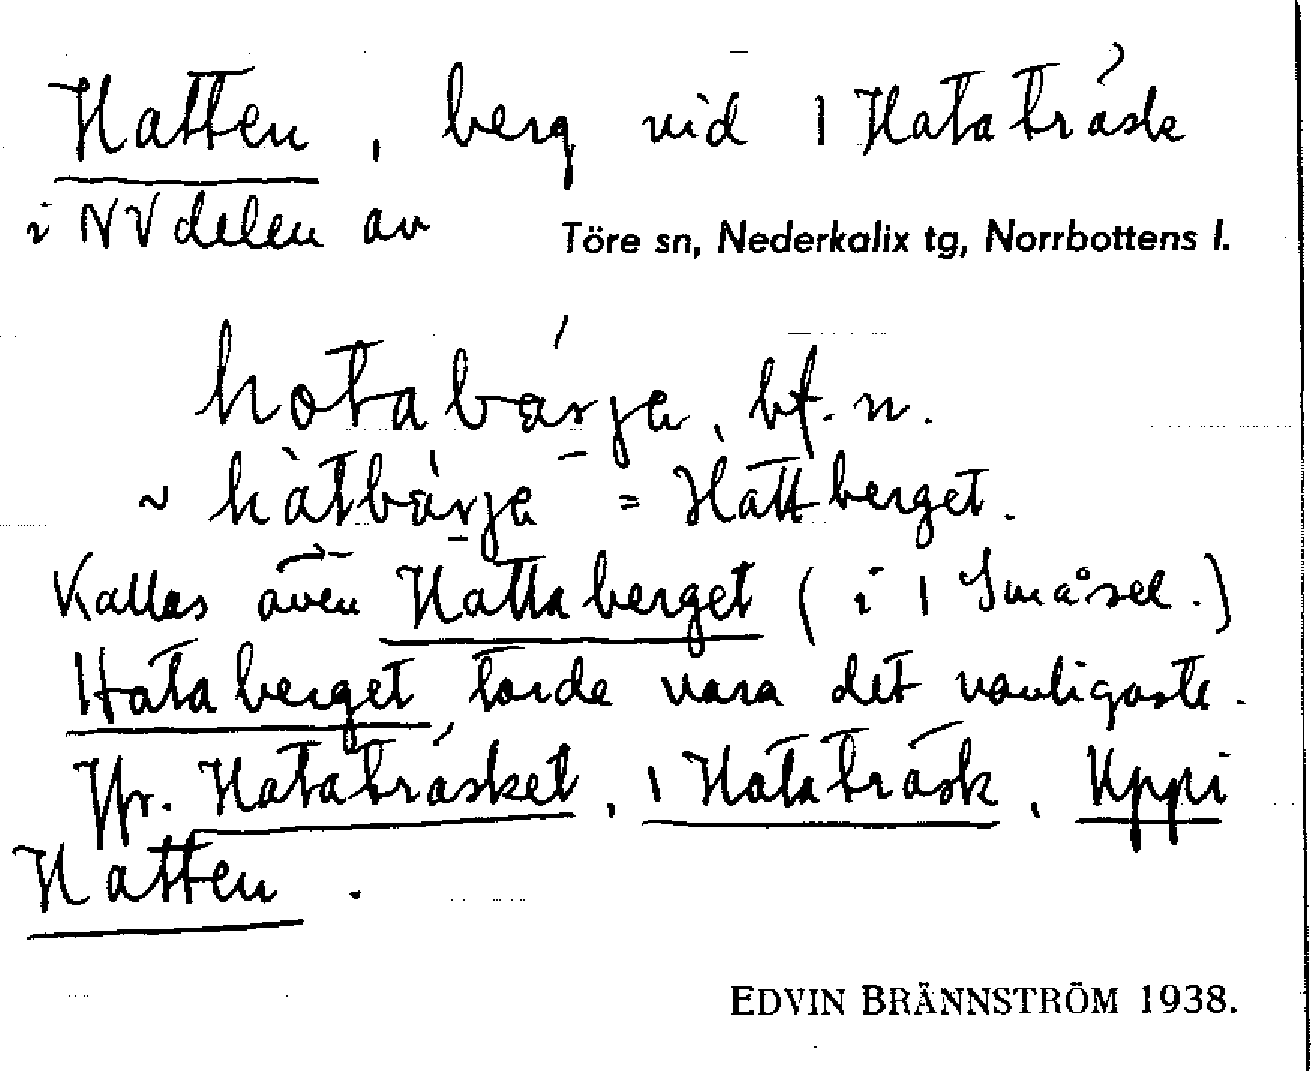 Hatten, berg vid 1 Hataträsk
i NV delen av Töre sn, Nederkalix tg, Norrbottens l.
hotabárja, bf. n.
~ hàtbárja = Hattberget.
Kallas även Hattaberget (i 1 Småsel.)
Hataberget torde vara det vanligaste.
Jfr. Hataträsket, 1 Hataträsk, Uppi
Hatten.
EDVIN BRÄNNSTRÖM 1938.